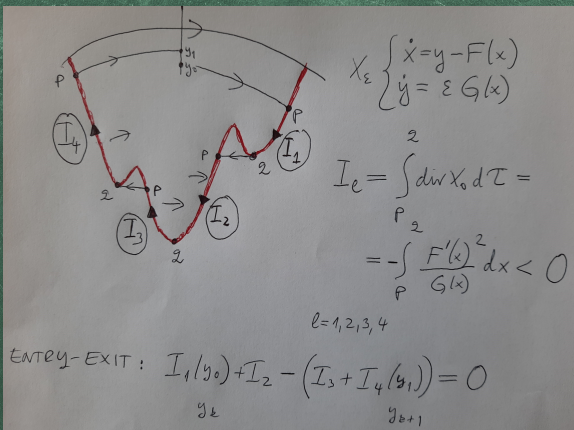 y₁
y₀
P
P
P
P
2
2
2
I₄
I₁
I₃
I₂
Xε { ẋ = y - F(x)
ẏ = ε G(x)
Iₑ = ∫ₚ² div X₀ dτ =
= - ∫ₚ² F'(x)² / G(x) dx < 0
l = 1, 2, 3, 4
ENTRY-EXIT: I₁(y₀) + I₂ - (I₃ + I₄(y₁)) = 0
yₖ yₖ₊₁